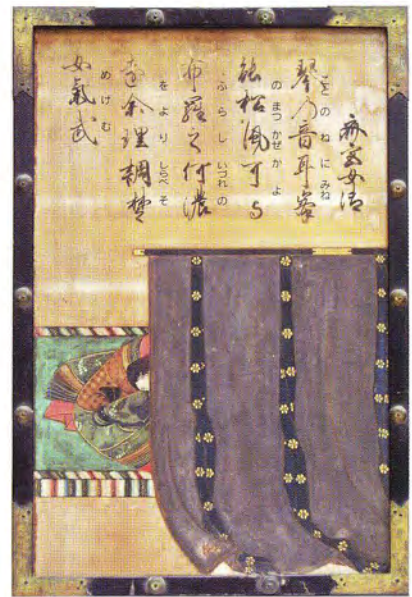 斎宮女御
琴乃音耳峯
ことのねに みね
能松風可与
のまつかぜかよ
布羅之何濃
ふらし いづれの
遠余理調楚
をより しらべそ
女氣武
めけむ